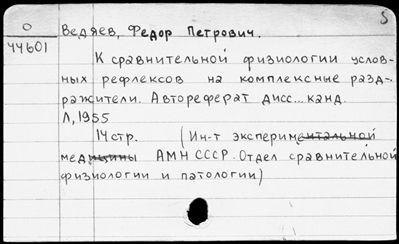 5
О
44601
Ведяев, Федор Петрович.
К сравнительной физиологии услов-
ных рефлексов на комплексные разд-
ражители. Автореферат дисс... канд.
Л, 1955
14 стр. (Ин-т экспериментальной
медицины АМН СССР. Отдел сравнительной
физиологии и патологии)